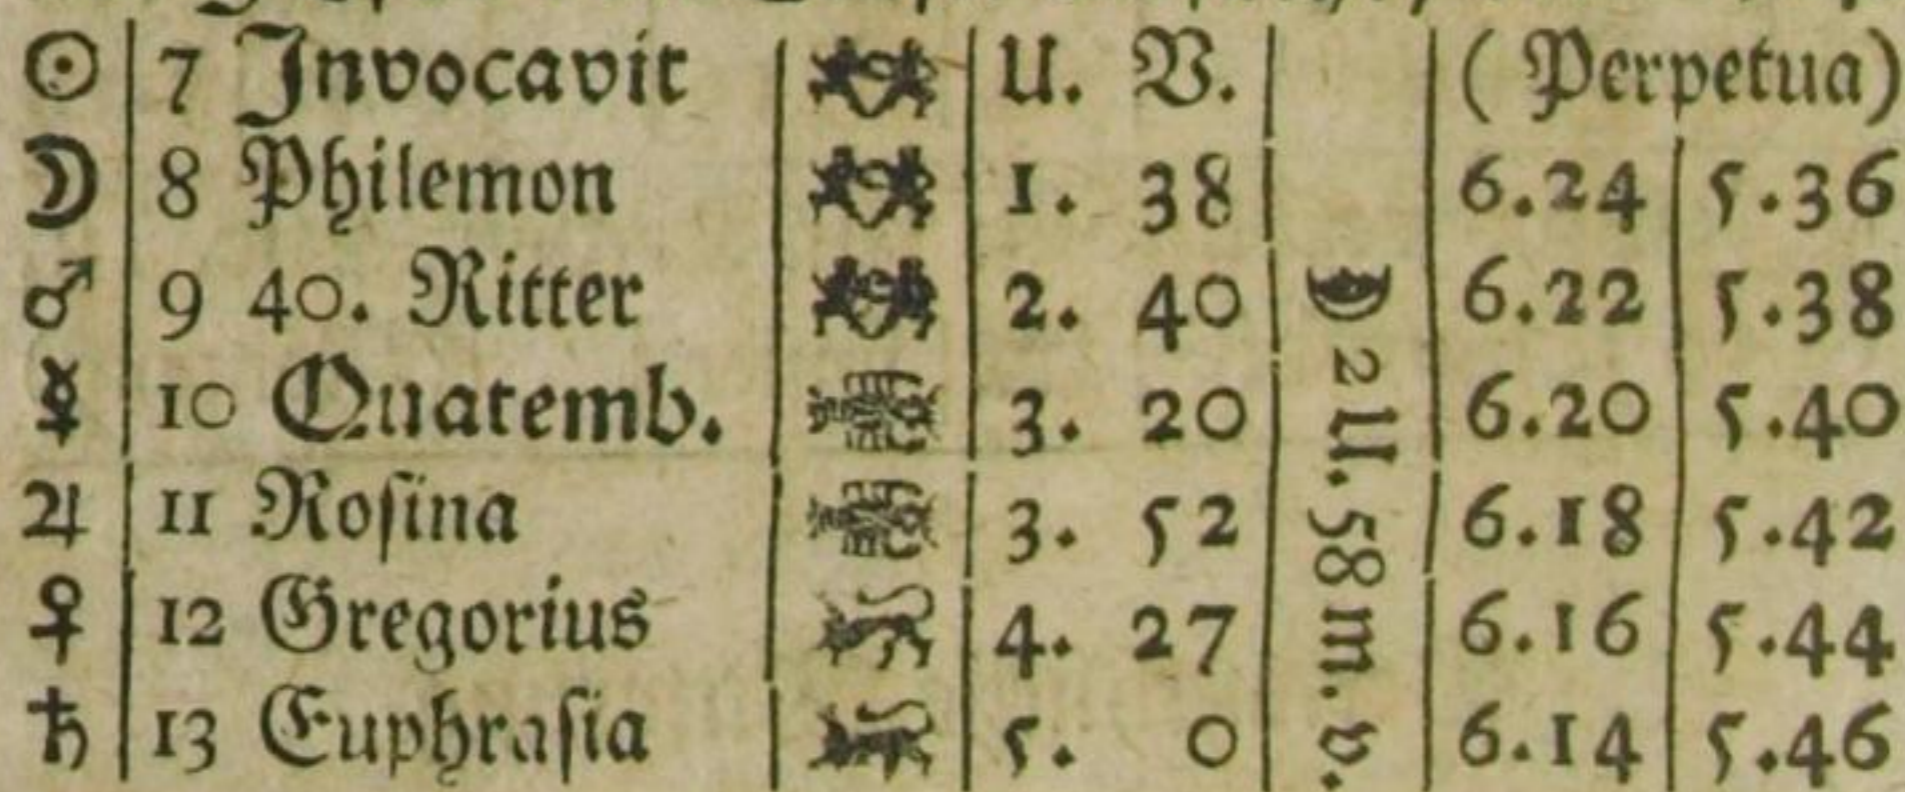 ☉ 7 Invocavit U. V. (Perpetua)
☽ 8 Philemon 1. 38 6.24 5.36
♂ 9 40. Ritter 2. 40 6.22 5.38
☿ 10 Quatemb. 3. 20 6.20 5.40
♃ 11 Roſina 3. 52 6.18 5.42
♀ 12 Gregorius 4. 27 6.16 5.44
♄ 13 Euphraſia 5. 0 6.14 5.46
2 U. 58 m. v.